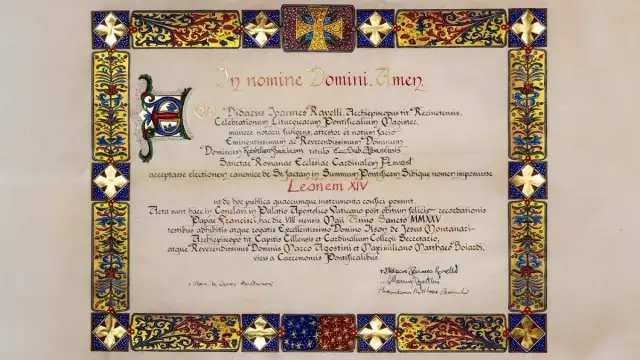 In nomine Domini. Amen.
Didacus Ioannes Ravelli, Archiepiscopus tit. Recinetensis,
Celebrationum Liturgicarum Pontificalium Magister,
munere notarii fungens, attestor et notum facio
Eminentissimum ac Reverendissimum Dominum
Dominum Robertum Franciscum titulo Ecc. Sub. Albanensis
Sanctae Romanae Ecclesiae Cardinalem Prevost
acceptasse electionem canonice de Se factam in Summum Pontificem Sibique nomen imposuisse
Leonem XIV
ut de hoc publica quaecumque instrumenta confici possint.
Acta sunt haec in Conclavi in Palatio Apostolico Vaticano post obitum felicis recordationis
Papae Francisci, hac die VIII mensis Maii Anno Sancto MMXXV
testibus adhibitis atque rogatis Excellentissimo Domino Ilson de Jesus Montanari
Archiepiscopo tit. Capitis Cillensis et Cardinalium Collegii Secretario,
atque Reverendissimis Dominis Marco Agostini et Maximiliano Matthaeo Boiardi,
viris a Caeremoniis Pontificalibus.